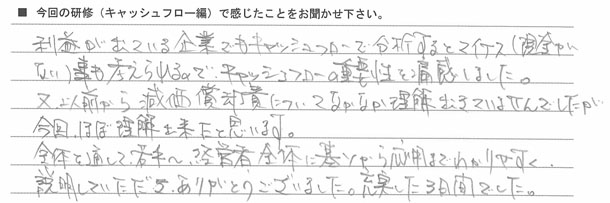 ■ 今回の研修（キャッシュフロー編）で感じたことをお聞かせ下さい。
利益が出ている企業でもキャッシュフローで分析するとマイナス（現金が
ない）事も考えられるので、キャッシュフローの重要性を痛感しました。
又、以前から減価償却費についてなかなか理解出来ていませんでしたが
今回、ほぼ理解出来たと思います。
全体を通して若手〜、経営者全体に基礎から応用までわかりやすく、
説明していただき、ありがとうございました。充実した3日間でした。